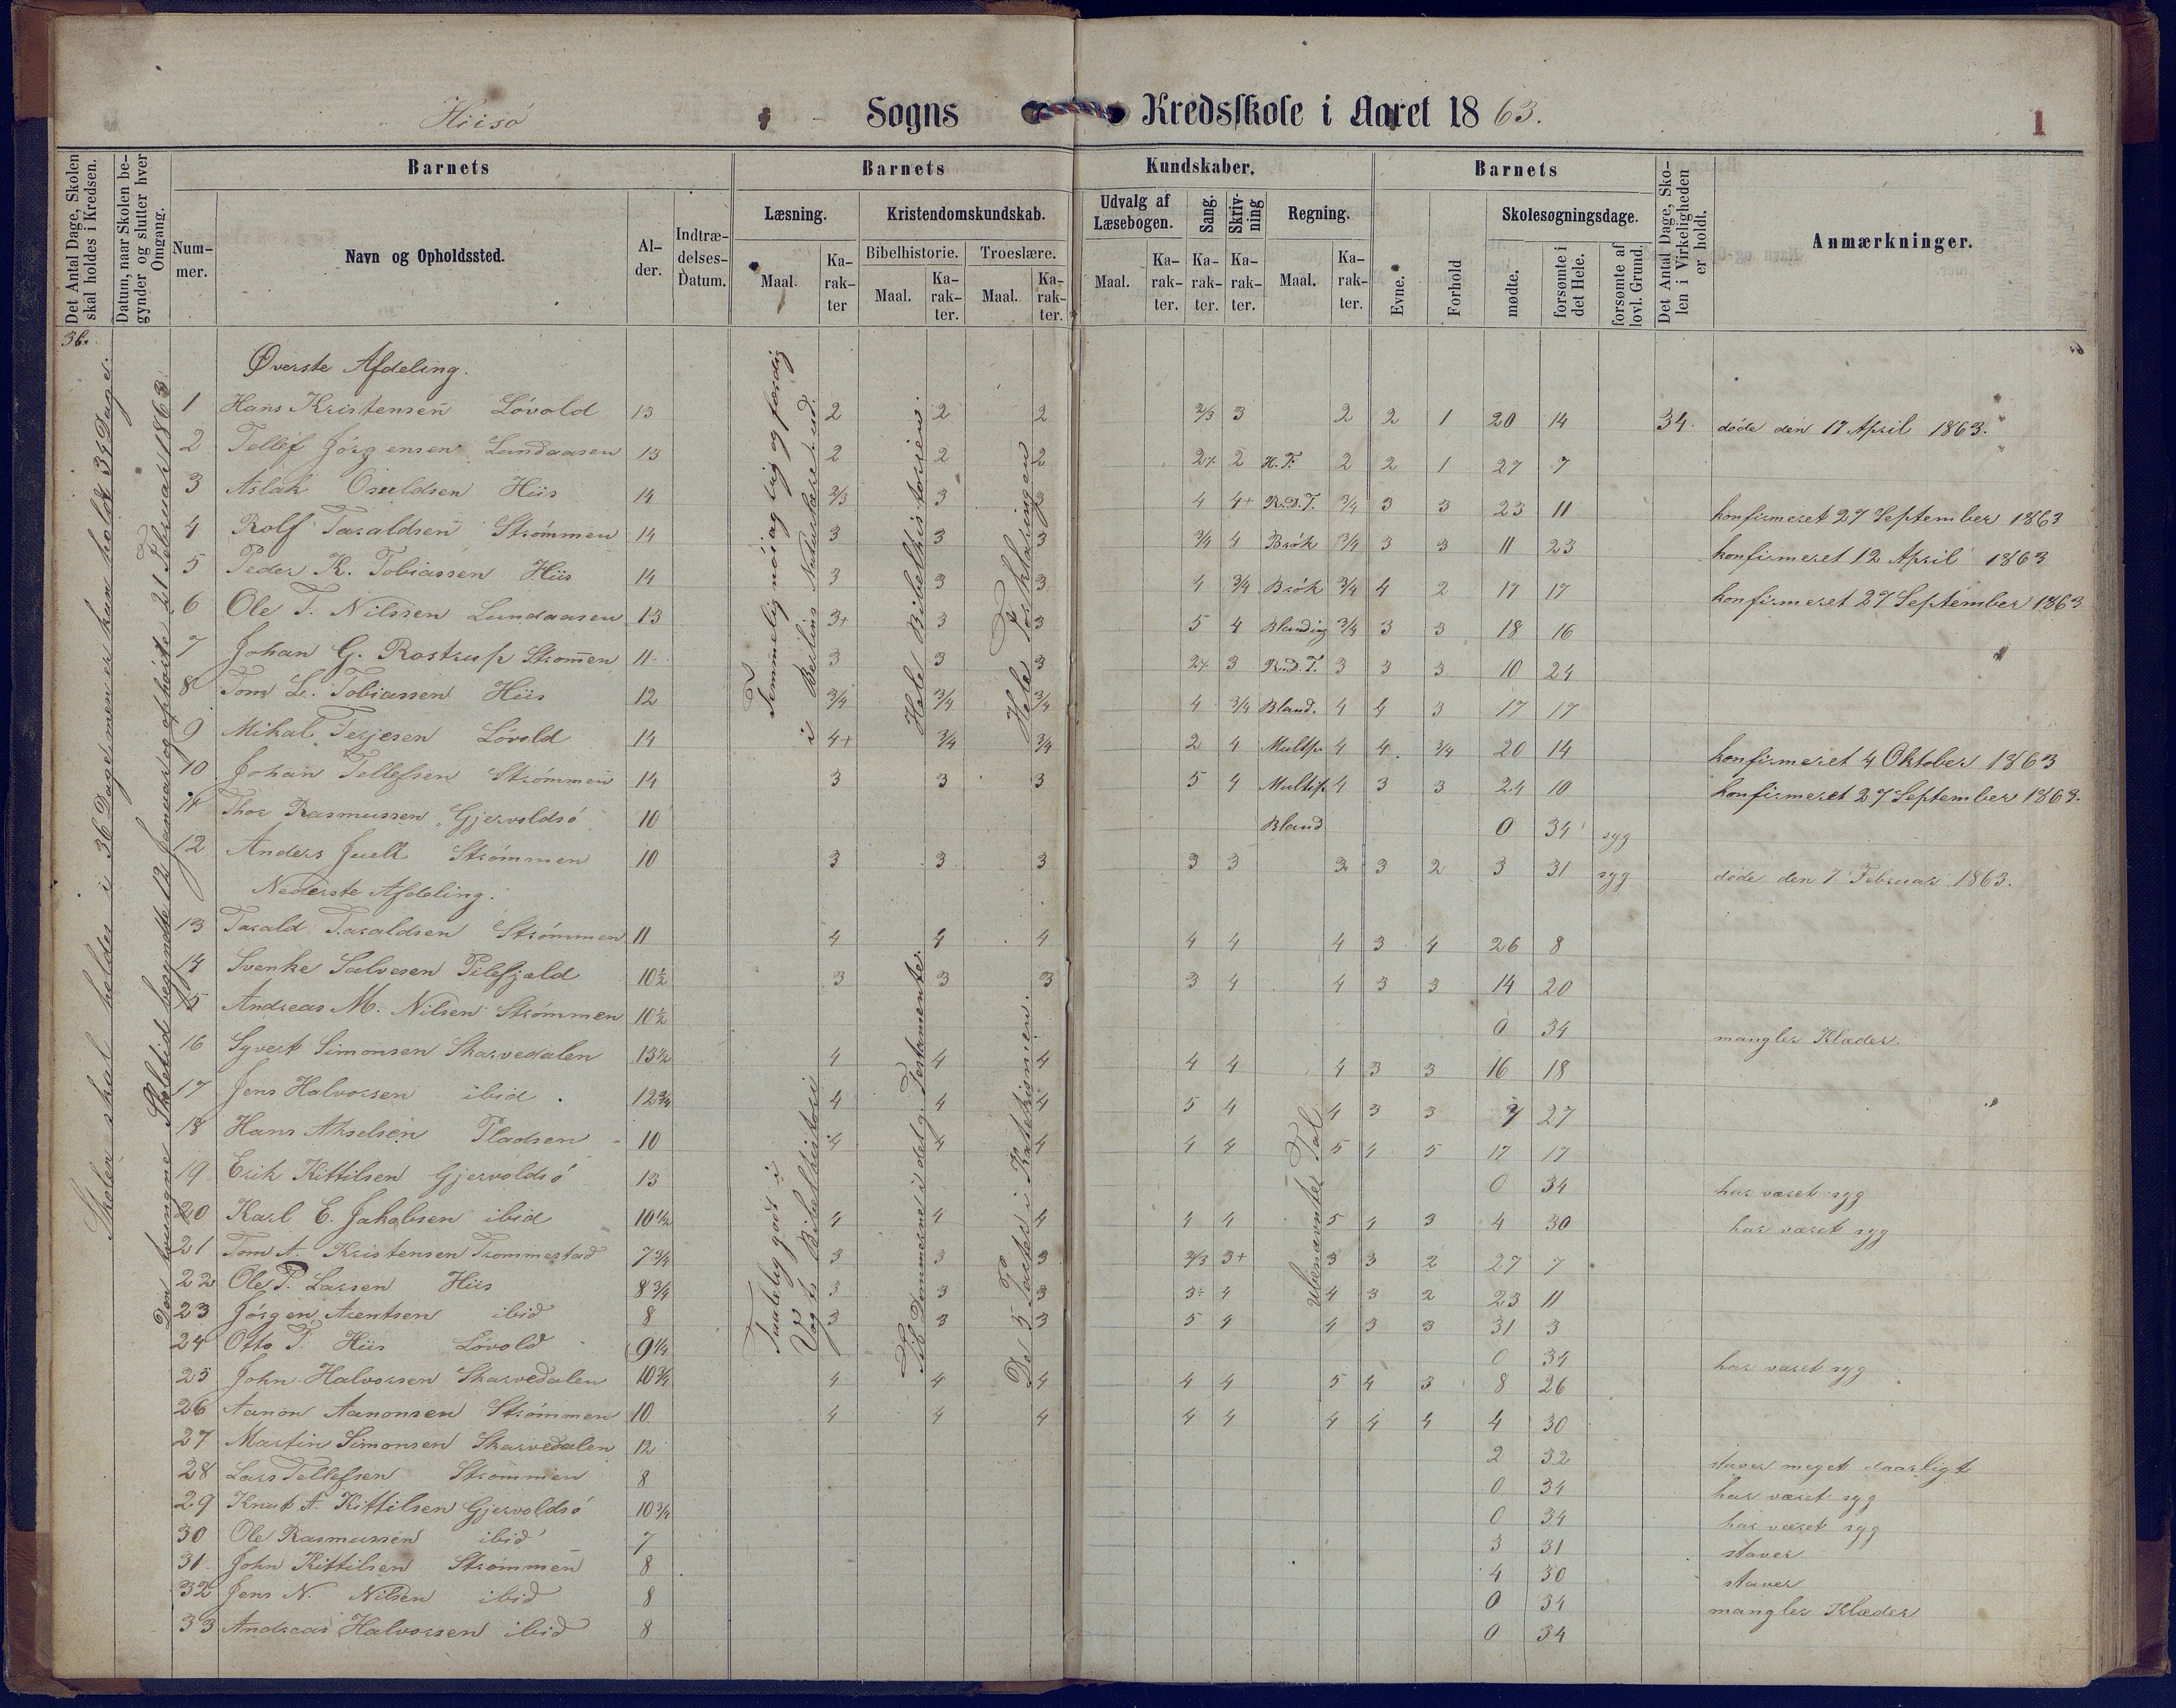 Hiisö Sogns Kredsskole i Aaret 1863.
1
Det Antal Dage, Skolen skal holdes i Kredsen.
Datum, naar Skolen begynder og slutter hver Omgang.
Barnets
Nummer.
Navn og Opholdssted.
Alder.
Indtrædelses-Datum.
Barnets Kundskaber.
Læsning.
Maal.
Karakter
Kristendomskundskab.
Bibelhistorie.
Maal.
Karakter.
Troeslære.
Maal.
Karakter.
Udvalg af Læsebogen.
Maal.
Karakter.
Sang.
Karakter.
Skrivning
Karakter.
Regning.
Maal.
Karakter.
Barnets
Evne.
Forhold
Skolesøgningsdage.
mødte.
forsømte i det Hele.
forsømte af lovl. Grund.
Det Antal Dage, Skolen i Virkeligheden er holdt.
Anmærkninger.
36.
Skolen skal holdes i 36 Dage men er kun holdt 34 Dage.
Den tvungne Skoletid begyndte 12 Januar og ophörte 21 Februar 1863
Temmelig nöiagtig og færdig
i Berlins Naturlære ud.
Hele Bibelhistorien.
Hele Forklaringen
Øverste Afdeling.
1 Hans Kristensen Lövold 13 2 2 2 2/3 3 2 2 1 20 14 34. döde den 17 April 1863.
2 Tellef Jörgensen Lundaasen 13 2 2 2 2÷ 2 H.T. 2 2 1 27 7
3 Aslak Osuldsen Hiis 14 2/3 3 3 4 4+ R.d.T. 3/4 3 3 23 11 konfirmeret 27 September 1863
4 Rolf Taraldsen Strömmen 14 3 3 3 3/4 4 Brök 3/4 3 3 11 23 konfirmeret 12 April 1863
5 Peder K. Tobiassen Hiis 14 3 3 3 4 3/4 Brök 3/4 4 2 17 17 konfirmeret 27 September 1863
6 Ole T. Nilssen Lundaasen 13 3+ 3 3 5 4 Blanding 3/4 3 3 18 16
7 Johan G. Rostrup Strömen 11 3 3 3 2÷ 3 R.d.T. 3 3 3 10 24
8 Tom L. Tobiassen Hiis 12 3/4 3/4 3/4 4 3/4 Bland. 4 4 3 17 17
9 Mikal Terjesen Lövold 14 4+ 3/4 3/4 2 4 Multip 4 4 3/4 20 14 konfirmeret 4 Oktober 1863
10 Johan Tellefsen Strömmen 14 3 3 3 5 4 Multip 4 3 3 24 10 konfirmeret 27 September 1863.
11 Thor Rasmussen Gjervoldsö 10 Bland 0 34 syg
12 Anders Juell Strömmen 10 3 3 3 3 3 3 3 2 3 31 syg döde den 7 Februar 1863.
Nederste Afdeling.
Taalelig godt i
Vogts Bibelhistorie
Stk. Temmerne i det g. Testamente.
De 5 Parter i Katekismen.
Ubenævnte Tal
13 Tarald Taraldsen Strömmen 11 4 4 4 4 4 4 3 4 26 8
14 Svenke Salvesen Pilefjeld 10½ 3 3 3 3 4 4 3 3 14 20
15 Andreas M. Nilsen Strömmen 10½ 0 34 mangler Klæder.
16 Syvert Simonsen Skarvedalen 13½ 4 4 4 4 4 4 3 3 16 18
17 Jens Halvorsen ibid. 12¾ 4 4 4 5 4 4 3 3 7 27
18 Hans Akselsen Pladsen 10 4 4 4 4 4 5 4 5 17 17
19 Erik Kittilsen Gjervoldsö 13 0 34 har været syg
20 Karl E. Jakobsen ibid 10½ 4 4 4 4 4 5 4 3 4 30 har været syg
21 Tom A. Kristensen Trommestad 7¾ 3 3 3 2/3 3+ 3 3 2 27 7
22 Ole P. Larsen Hiis 8¾ 3 3 3 3÷ 4 4 3 2 23 11
23 Jörgen Arentsen ibid 8 3 3 3 5 4 4 3 3 31 3
24 Otto T. Hiis Lövold 9¼ 0 34 har været syg
25 John Halvorsen Skarvedalen 10¾ 4 4 4 4 4 5 4 3 8 26
26 Aanon Aanonsen Strömmen 10 4 4 4 4 4 4 4 4 4 30
27 Martin Simonsen Skarvedalen 12 2 32 staver meget daarligt
28 Lars Tellefsen Strömmen 8 0 34 har været syg
29 Knut A. Kittilsen Gjervoldsö 10¾ 0 34 har været syg
30 Ole Rasmussen ibid 7 3 31 staver
31 John Kittilsen Strömmen 8 4 30 staver
32 Jens N. Nilsen ibid 8 0 34 mangler Klæder
33 Andreas Halvorsen ibid 8 0 34